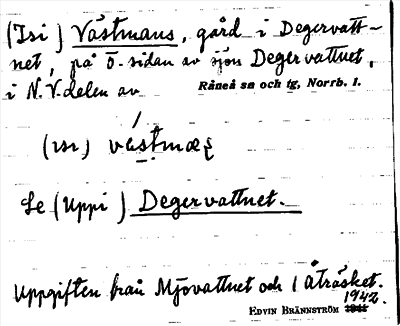 (Isi) Västmans, gård i Degervatt-
net, på ö. sidan av sjön Degervattnet,
i N.V. delen av Råneå sn och tg, Norrb. l.
(ısı)
Se (Uppi) Degervattnet.
Uppgiften från Mjövattnet och 1 Åträsket.
1942.
EDVIN BRÄNNSTRÖM 1941